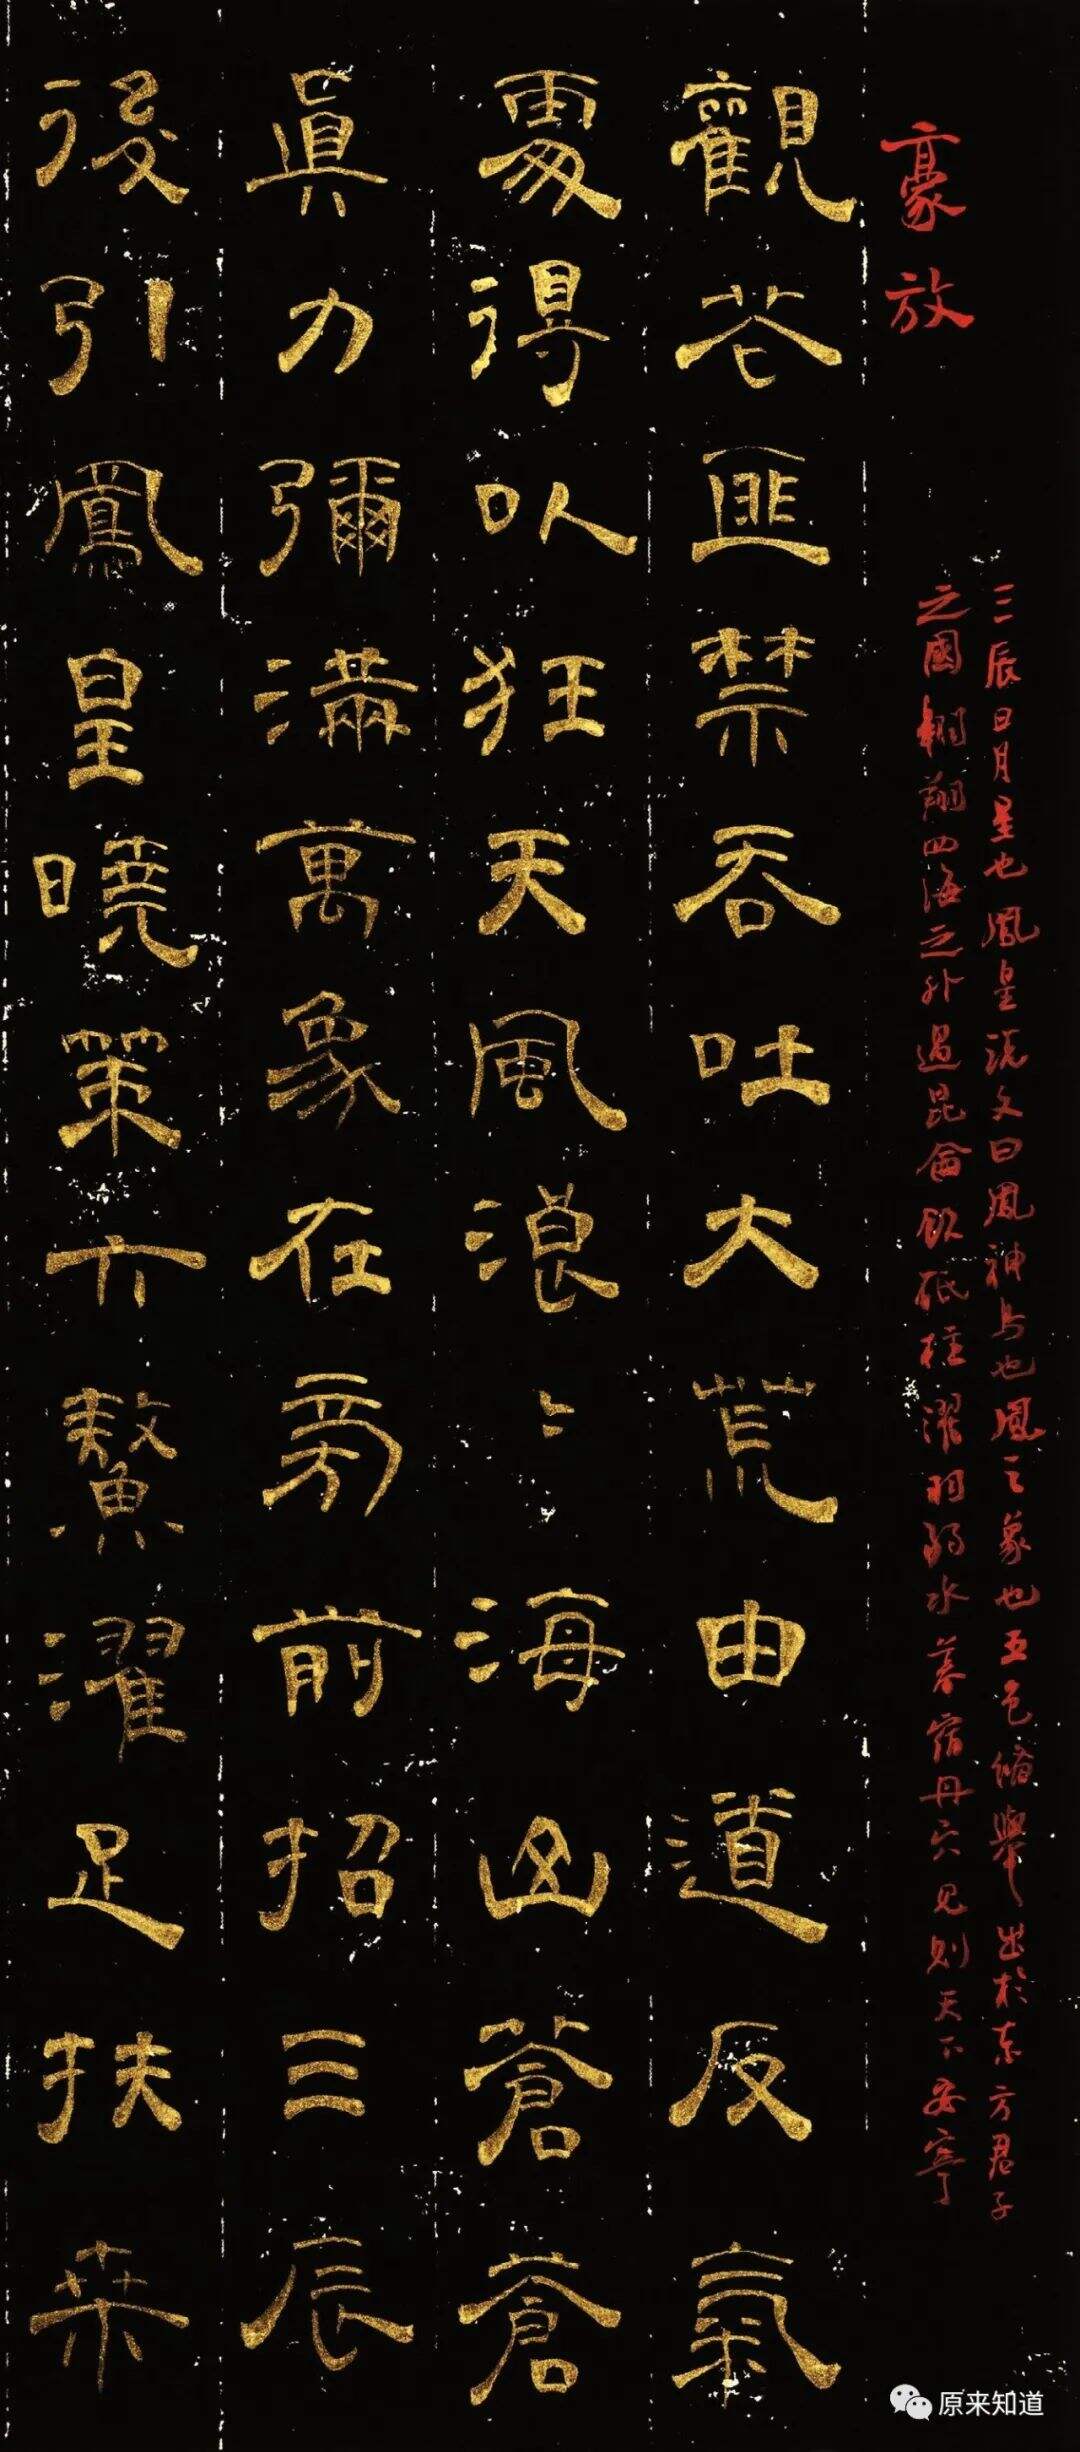 豪放
三辰日月星也鳳皇說文曰鳳神鳥也鳳之象也五色備舉出於東方君子
之國翱翔四海之外過昆侖飲砥柱濯羽弱水暮宿丹穴見則天下安寧
觀花匪禁吞吐大荒由道反氣
處得以狂天風浪〻海山蒼蒼
眞力彌滿萬象在旁前招三辰
後引鳳皇曉策六鰲濯足扶桒
原来知道